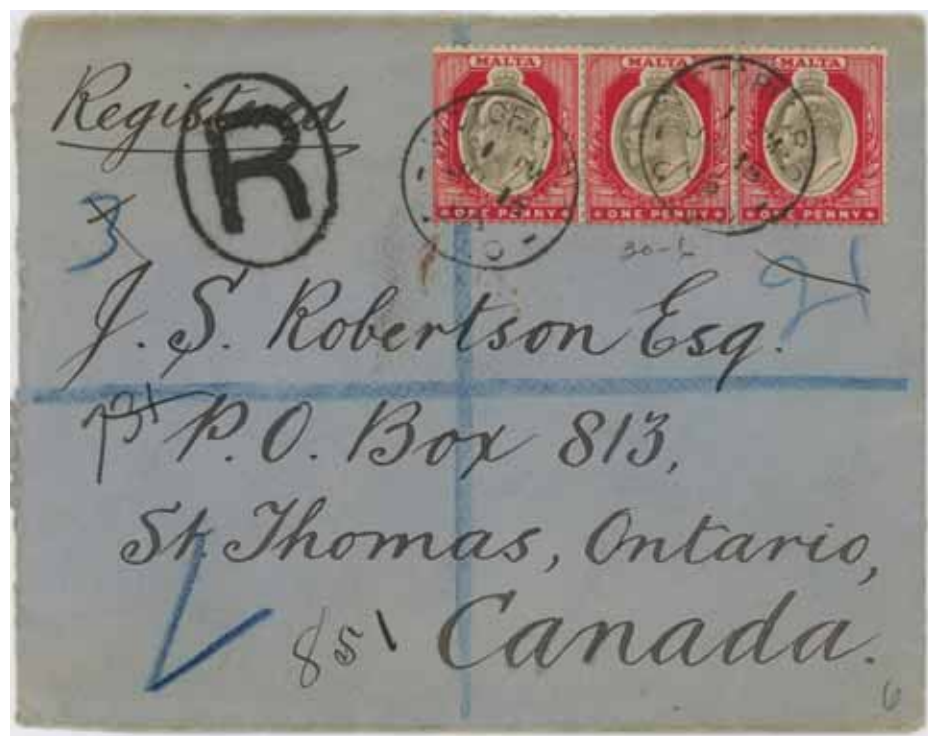 Registered
R
MALTA MALTA MALTA
ONE PENNY ONE PENNY ONE PENNY
3
21
J. S. Robertson Esq.
P.O. Box 813,
St. Thomas, Ontario,
851
Canada.
6